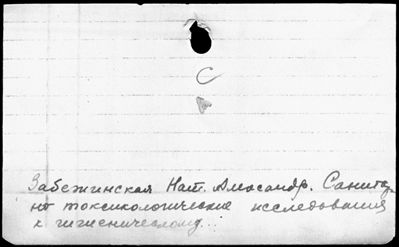 С
Забежинская Нат. Александр. Санита
но токсикологические исследования
к гигиеническому...